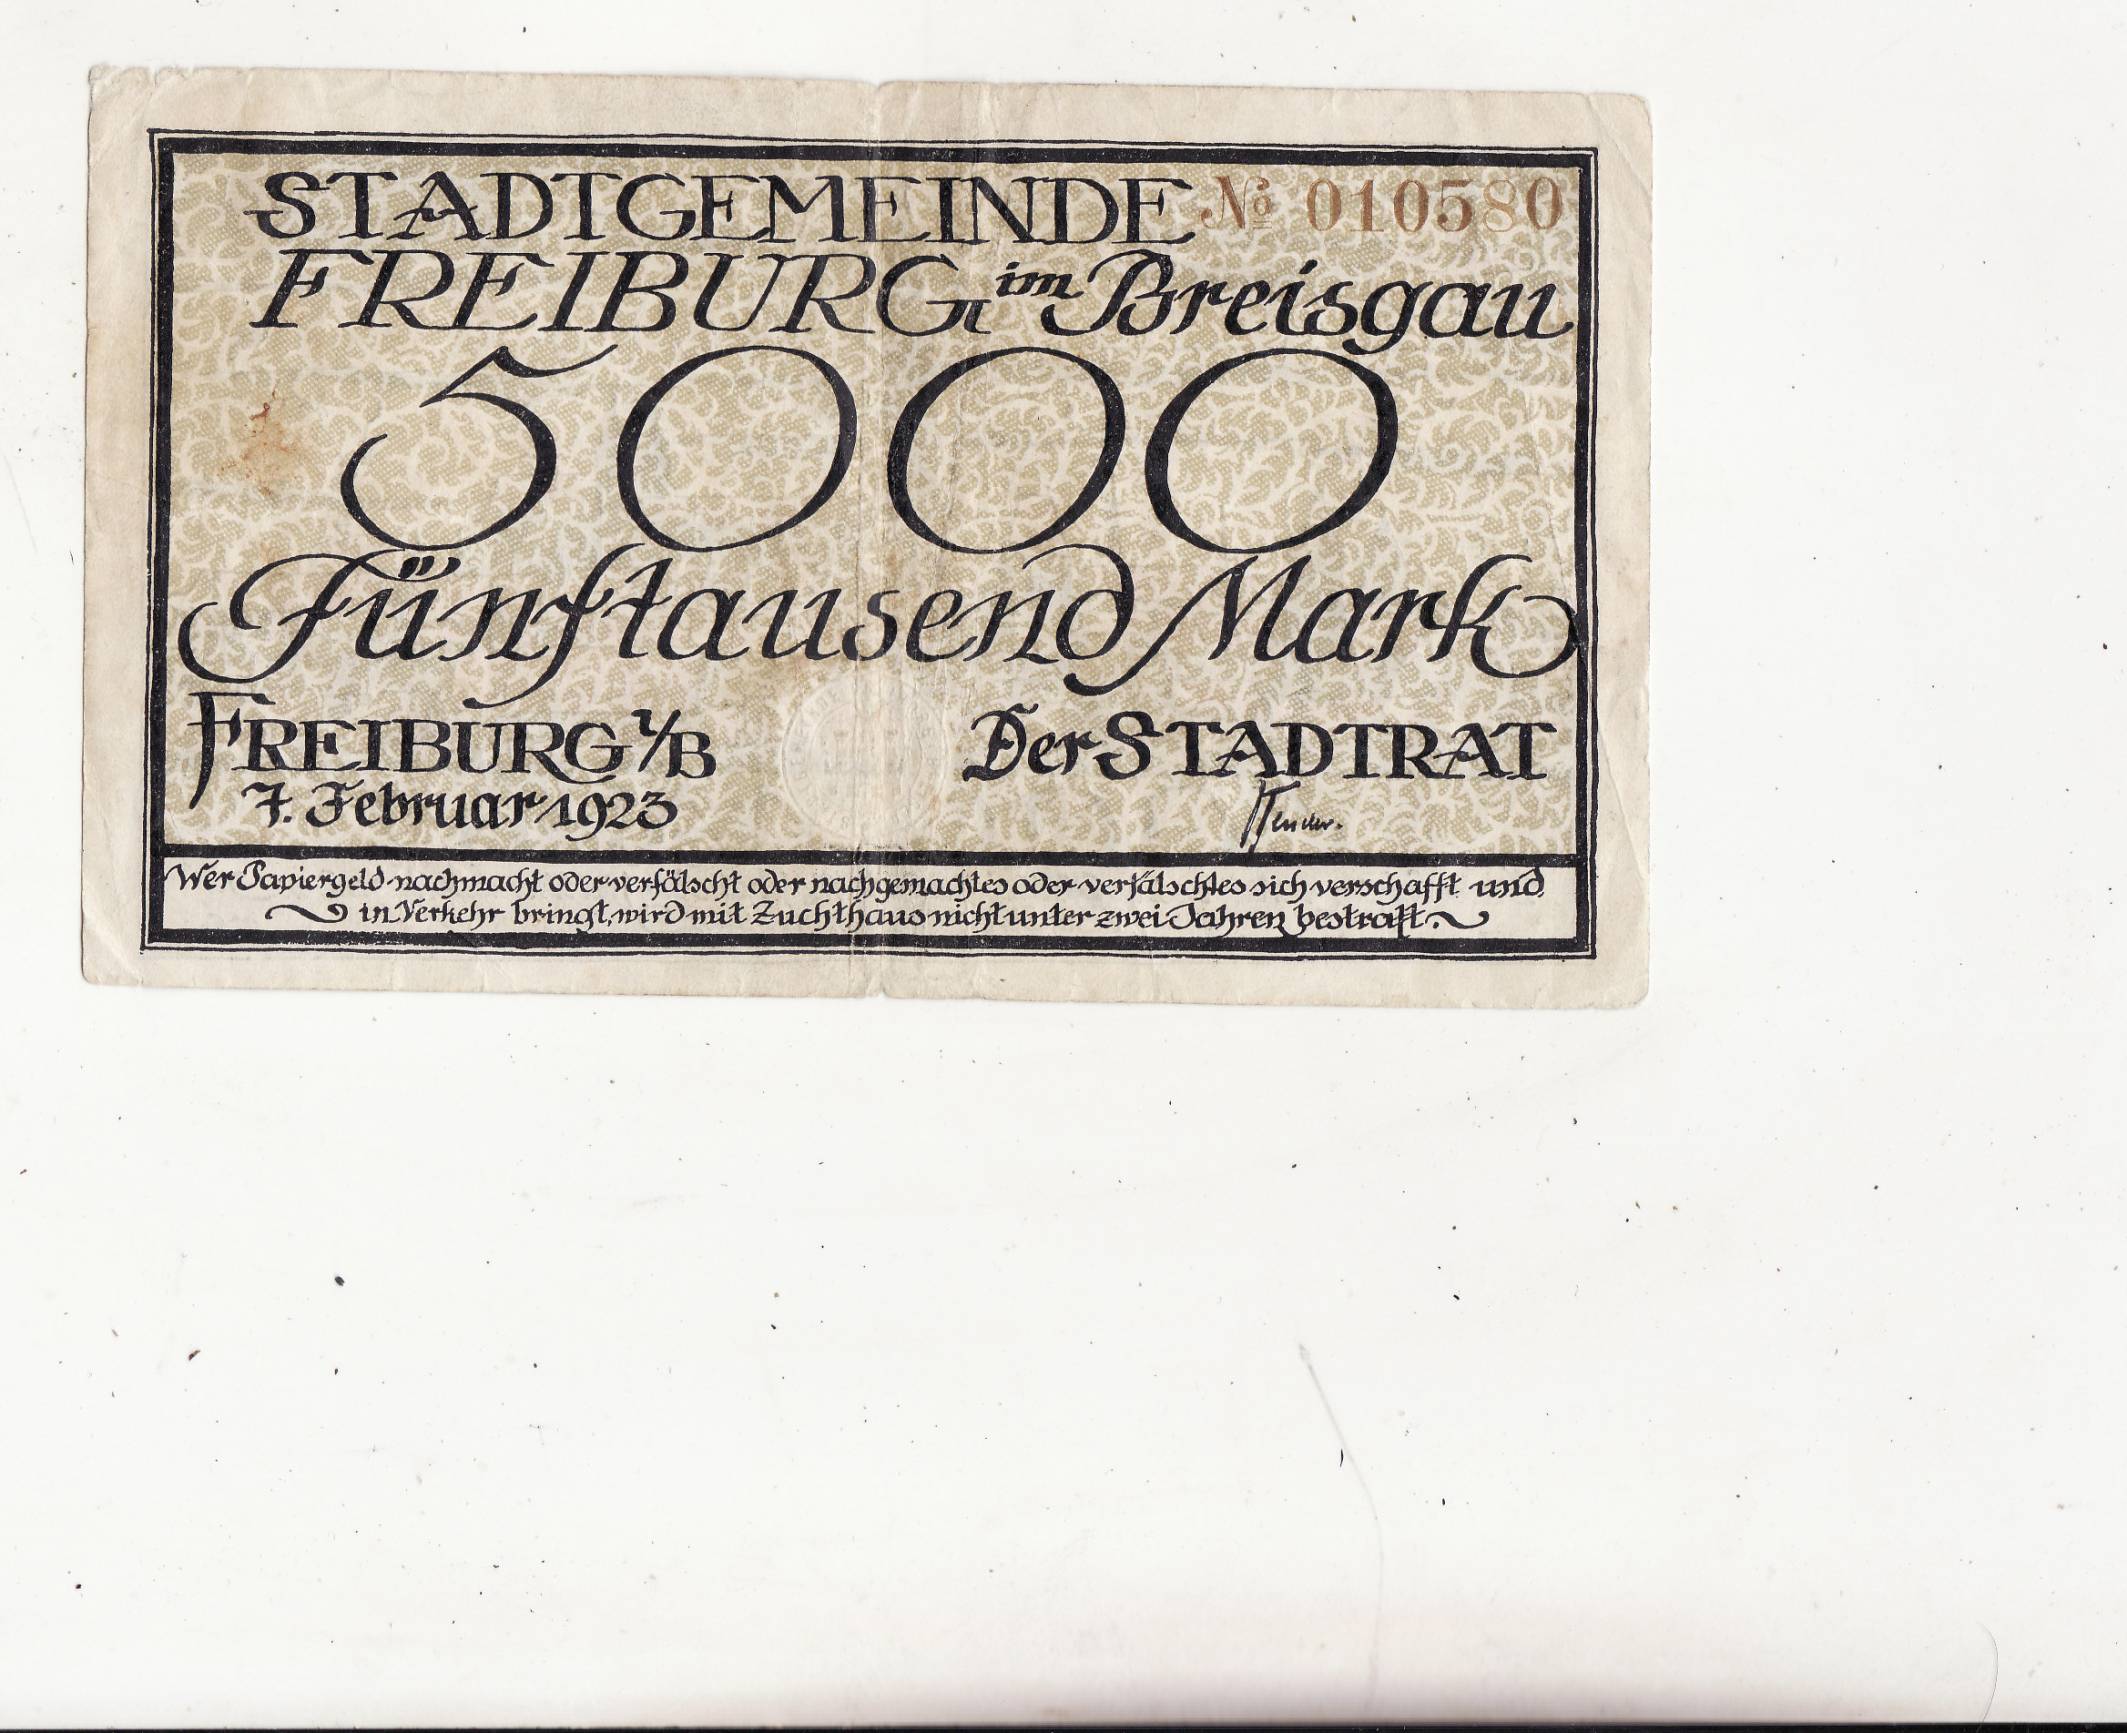 STADTGEMEINDE № 010580
FREIBURG im Breisgau
5000
Fünftausend Mark
FREIBURG i/B Der STADTRAT
7. Februar 1923
Wer Papiergeld nachmacht oder verfälscht oder nachgemachtes oder verfälschtes sich verschafft und
in Verkehr bringt, wird mit Zuchthaus nicht unter zwei Jahren bestraft.